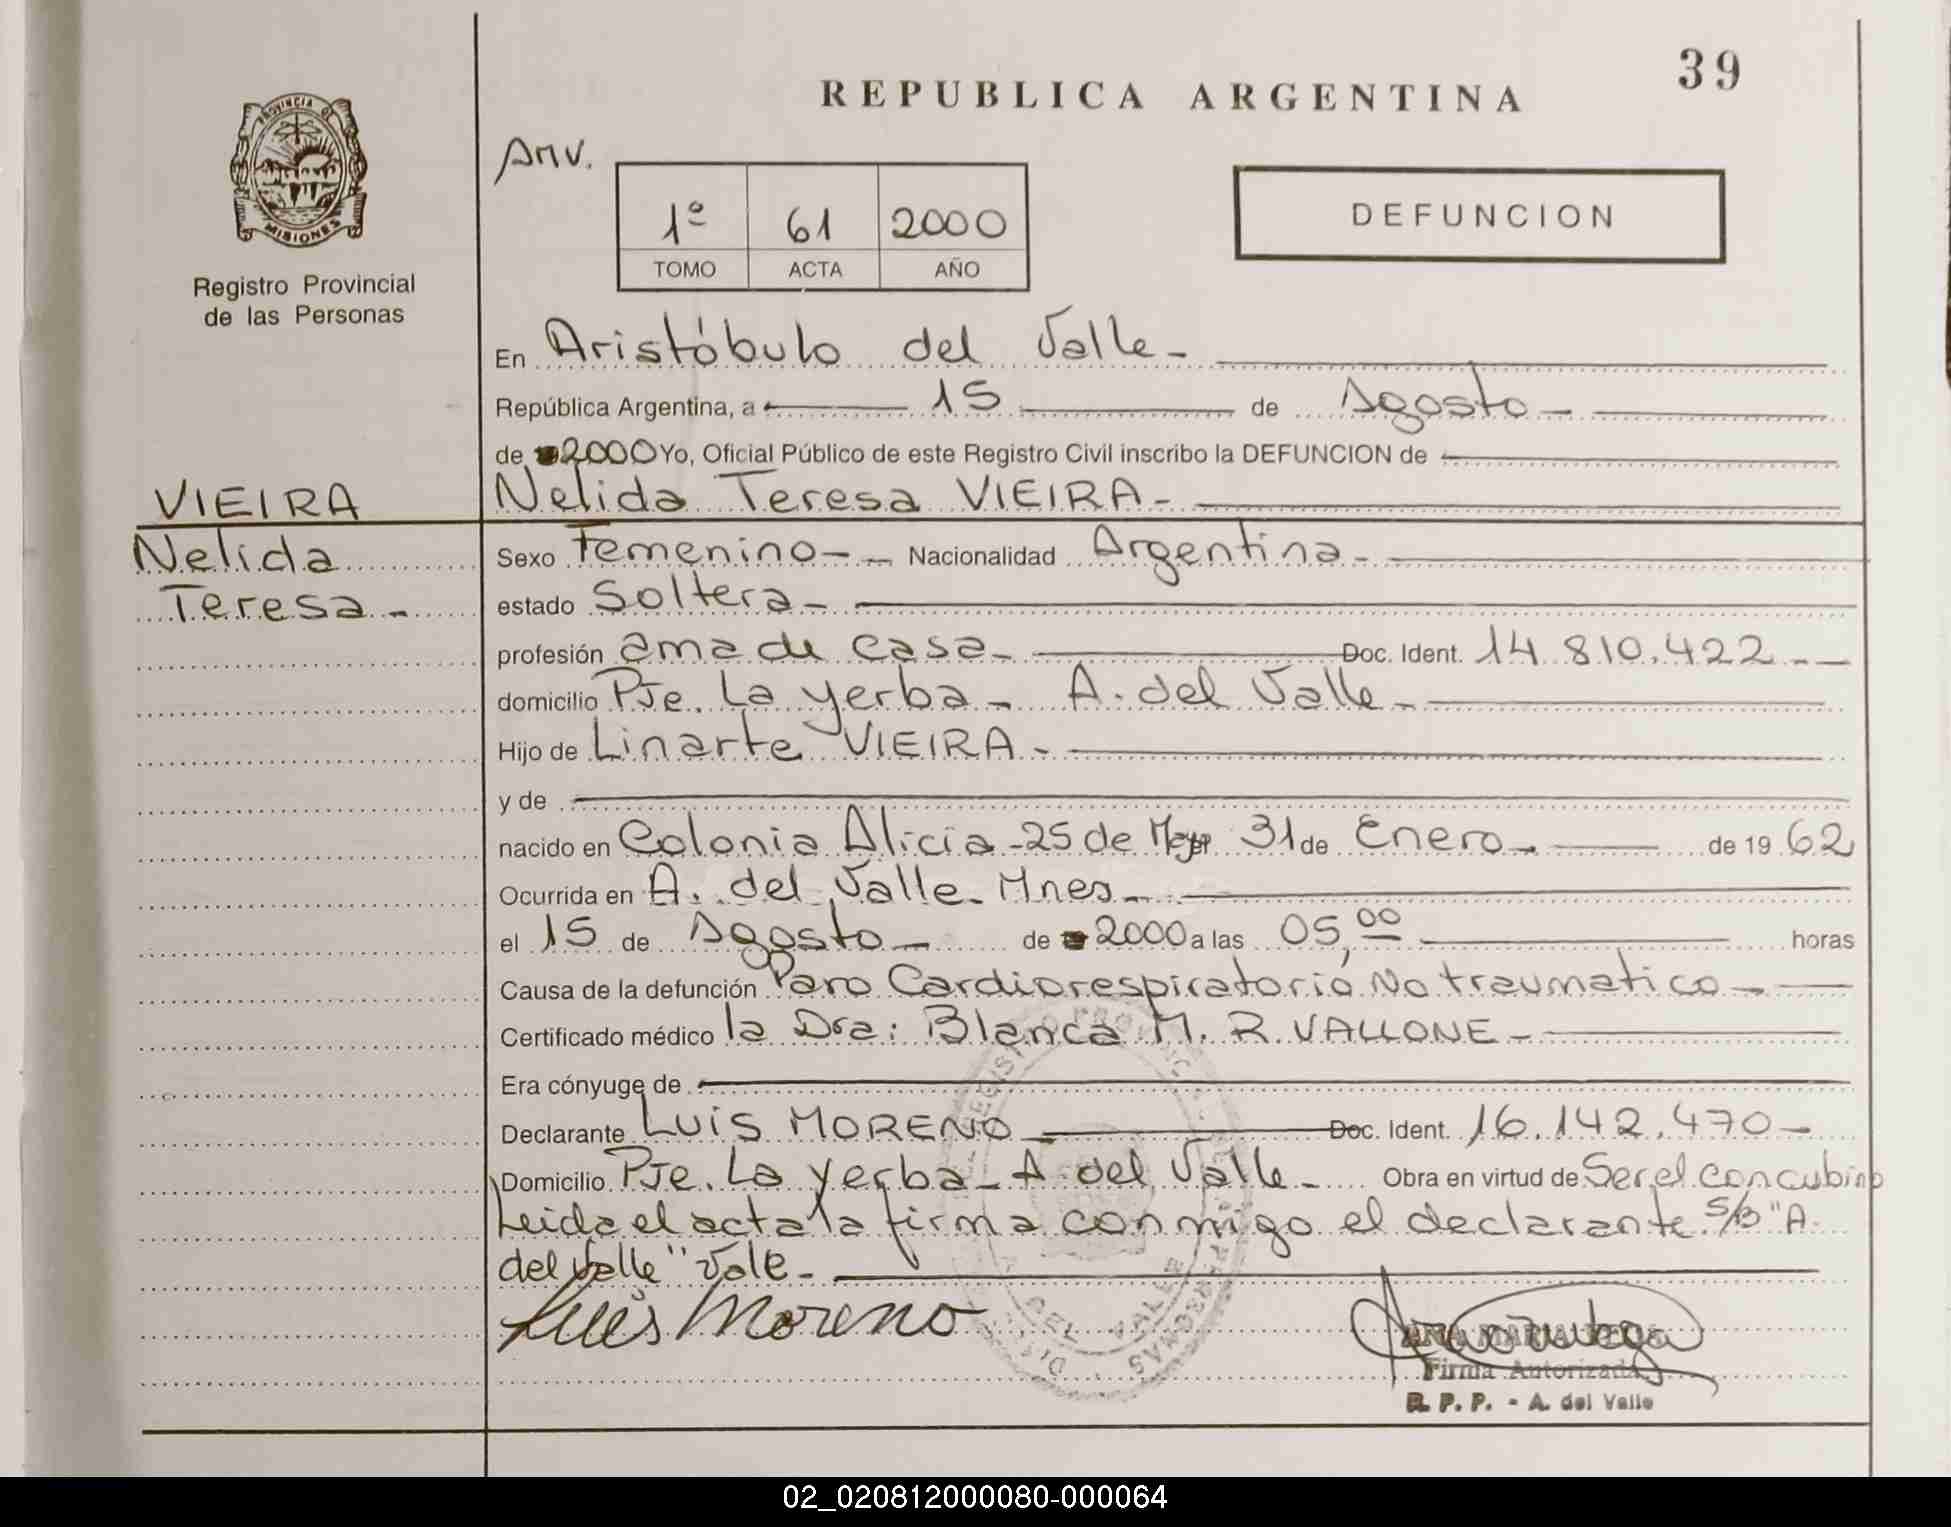 39
REPUBLICA ARGENTINA
PROVINCIA DE
MISIONES
Registro Provincial
de las Personas
Amv.
1º 61 2000
TOMO ACTA AÑO
DEFUNCION
En Aristóbulo del Valle-
República Argentina, a 15 de Agosto-
de 2000 Yo, Oficial Público de este Registro Civil inscribo la DEFUNCION de
Nelida Teresa VIEIRA-
VIEIRA
Nelida
Teresa-
Sexo Femenino-- Nacionalidad Argentina-
estado Soltera-
profesión ama de casa- Doc. Ident. 14.810.422--
domicilio Pje. La yerba- A. del Valle-
Hijo de Linarte VIEIRA-
y de
nacido en Colonia Alicia-25 de Mayo 31 de Enero- de 19 62
Ocurrida en A. del Valle- Mnes-
el 15 de Agosto- de 2000 a las 05,00 horas
Causa de la defunción Paro Cardiorespiratorio No traumatico-
Certificado médico la Dra: Blanca M. R. VALLONE-
Era cónyuge de
Declarante LUIS MORENO- Doc. Ident. 16.142.470-
Domicilio Pje. La yerba- A del Valle- Obra en virtud de Ser el concubino
Leida el acta la firma conmigo el declarante S/B "A.
del Valle" Vale-
Luis Moreno
ANA MARIA
Firma Autorizada
R. P. P. - A. del Valle
DEL VALLE
PERSONAS
02_020812000080-000064